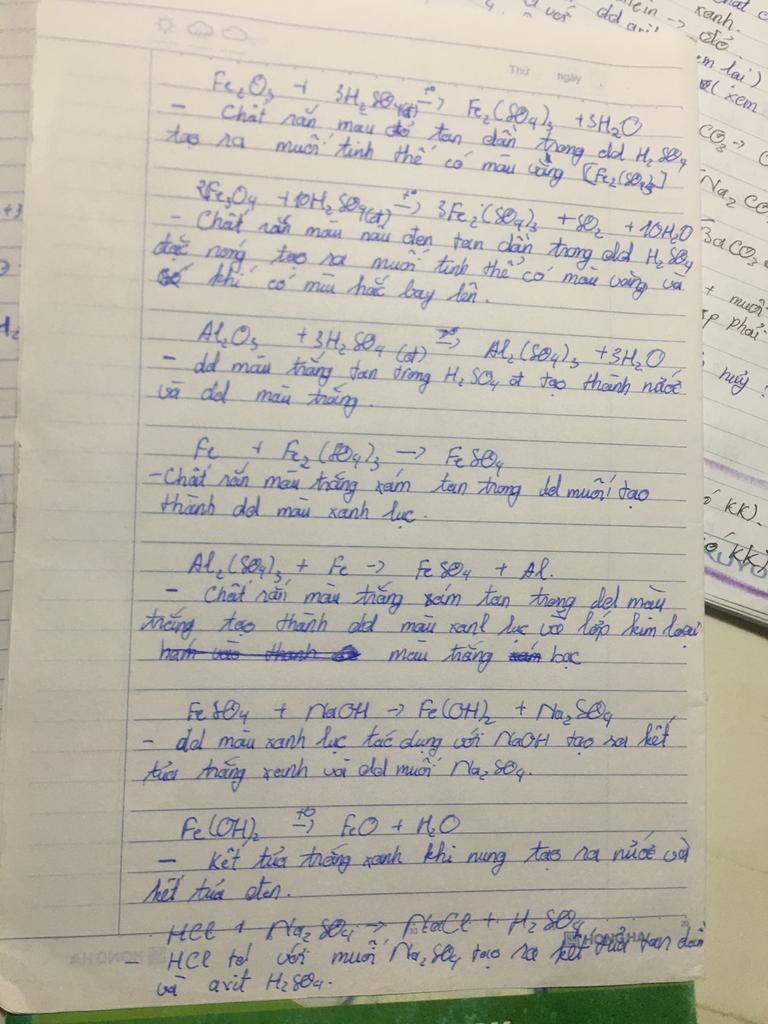 Thứ ngày
Fe₂O₃ + 3H₂SO₄(đ) t°→ Fe₂(SO₄)₃ + 3H₂O
- Chất rắn màu đỏ tan dần trong dd H₂SO₄
tạo ra muối tinh thể có màu vàng [Fe₂(SO₄)₃]
2Fe₃O₄ + 10H₂SO₄(đ) t°→ 3Fe₂(SO₄)₃ + SO₂ + 10H₂O
- Chất rắn màu nâu đen tan dần trong dd H₂SO₄
đặc nóng tạo ra muối tinh thể có màu vàng và
khí có mùi hắc bay lên.
Al₂O₃ + 3H₂SO₄ (đ) t°→ Al₂(SO₄)₃ + 3H₂O
- dd màu trắng tan trong H₂SO₄ đ tạo thành nước
và dd màu trắng.
Fe + Fe₂(SO₄)₃ → FeSO₄
- Chất rắn màu trắng xám tan trong dd muối tạo
thành dd màu xanh lục.
Al₂(SO₄)₃ + Fe → FeSO₄ + Al.
- Chất rắn màu trắng xám tan trong dd màu
trắng tạo thành dd màu xanh lục và lớp kim loại
màu trắng bạc
FeSO₄ + NaOH → Fe(OH)₂ + Na₂SO₄
- dd màu xanh lục tác dụng với NaOH tạo ra kết
tủa trắng xanh và dd muối Na₂SO₄.
Fe(OH)₂ t°→ FeO + H₂O
- Kết tủa trắng xanh khi nung tạo ra nước và
kết tủa đen.
HCl + Na₂SO₄ → NaCl + H₂SO₄
- HCl td với muối Na₂SO₄ tạo ra kết tủa tan dần
và axit H₂SO₄.
HONG HA
xanh.
đỏ
dd axit
em lại)
(xem
CO₃ →
Na₂CO
BaCO₃
+ muối
phải
hủy
KK).
KK)